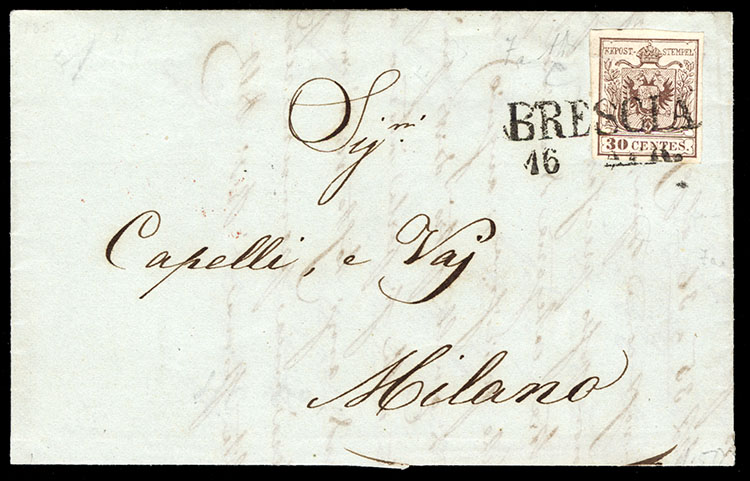 KKPOST-STEMPEL
BRESCIA
30 CENTES.
16 APR.
Sig.ri
Capelli, e Vaj
Milano